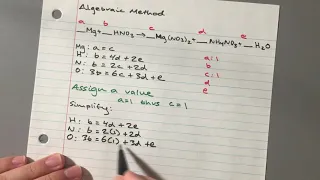 Algebraic Method
a b c d e
__Mg + __HNO₃ → __Mg(NO₃)₂ + __NH₄NO₃ + __H₂O
Mg: a = c
H: b = 4d + 2e
N: b = 2c + 2d
O: 3b = 6c + 3d + e
a: 1
b:
c: 1
d:
e:
Assign a value
a = 1 thus c = 1
Simplify:
H: b = 4d + 2e
N: b = 2(1) + 2d
O: 3b = 6(1) + 3d + e